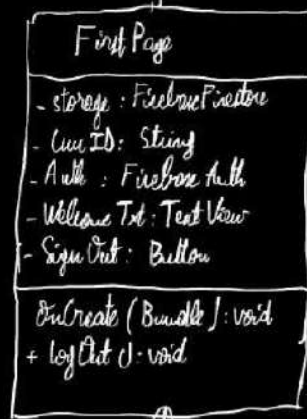 First Page
- storage : FirebaseFirestore
- Curr ID: String
- Auth : Firebase Auth
- Welcome Txt : Text View
- Sign Out : Button
OnCreate (Bundle) : void
+ log Out () : void